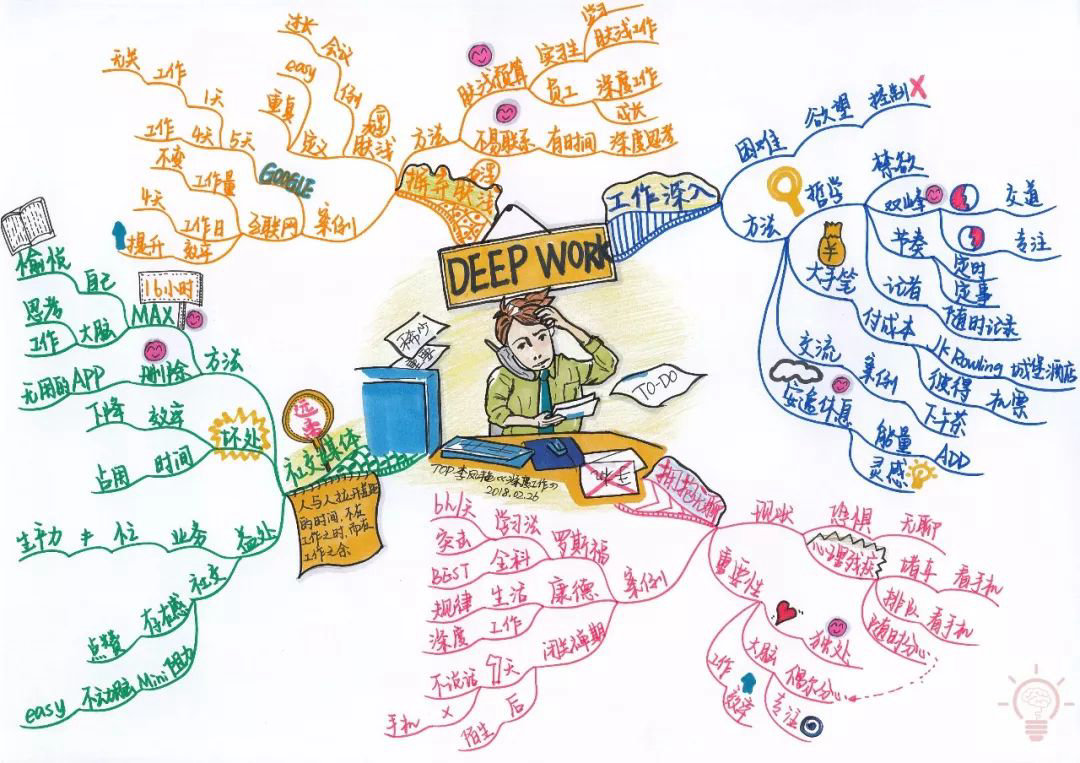 DEEP WORK
稀少
重要
TO-DO
2018.02.26
工作深入
困难
欲望
控制
方法
哲学
禁欲
双峰
交道
专注
节奏
定时
定事
记者
随时记录
大手笔
付成本
案例
JK Rowling 城堡酒店
彼得
机票
下午茶
交流
安逸休息
能量
ADD
灵感
拥抱无聊
现状
恐惧
无聊
心理残疾
堵车
看手机
排队
看手机
随时分心
重要性
独处
大脑
偶尔分心
专注
工作
效率
案例
罗斯福
学习法
6h/天
突击
康德
全科
BEST
生活
规律
工作
深度
闭关禅期
天
不说话
手机
后
陌生
远离
社交媒体
人与人拉开差距
的时间,不在
工作之时,而在
工作之余
方法
MAX
16小时
自己
愉悦
大脑
思考
工作
删除
无用的APP
坏处
效率
下降
时间
占用
益处
业务
位
≠
生产力
社交
存在感
点赞
Mini阻力
不动脑
easy
摒弃肤浅
方法
肤浅预算
实习生
学习
肤浅工作
员工
深度工作
成长
不易联系
有时间
深度思考
肤浅
例
会议
过长
定义
重复
easy
案例
互联网
GOOGLE
5天
4天
工作
1天
工作
无关
工作量
不变
工作日
4天
效率
提升